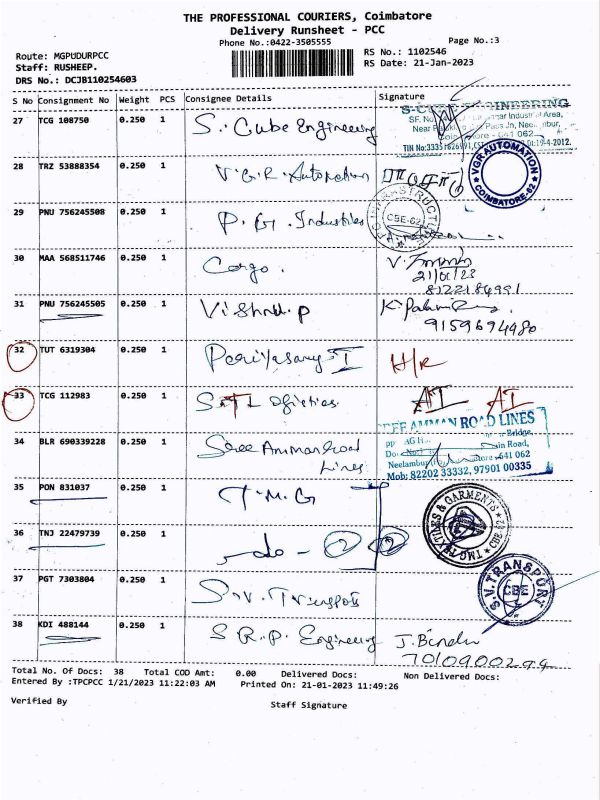 THE PROFESSIONAL COURIERS, Coimbatore
Delivery Runsheet - PCC
Phone No.:0422-3505555
Page No.:3
Route: MGPUDURPCC
RS No.: 1102546
Staff: RUSHEEP.
RS Date: 21-Jan-2023
DRS No.: DCJB110254603
S No Consignment No Weight PCS Consignee Details Signature
27 TCG 108750 0.250 1 S. Cube Engineering
28 TRZ 53888354 0.250 1 V.G.R. Automation
VGR AUTOMATION
COIMBATORE-62
29 PNU 756245508 0.250 1 P. G. Industries
INFRASTRUCTURE
CBE-62
30 MAA 568511746 0.250 1 Cargo.
21/01/23
8122184991
31 PNU 756245505 0.250 1 Vishnu. p
9159694980
32 TUT 6319304 0.250 1 Periyasamy I H/R
33 TCG 112983 0.250 1 AI AI
34 BLR 690339228 0.250 1 Sree Amman Road
Lines
AMMAN ROAD LINES
Bridge,
Road,
641 062
Mob: 82202 33332, 97901 00335
35 PON 831037 0.250 1 T.M.G
36 TNJ 22479739 0.250 1 do - 2 2
TMG TEXTILES & GARMENTS
37 PGT 7303804 0.250 1 S.V. Transports
S.V. TRANSPORT
CBE
38 KDI 488144 0.250 1 S R.P. Engineering J. Bindu
Total No. Of Docs: 38 Total COD Amt: 0.00 Delivered Docs: Non Delivered Docs:
Entered By :TPCPCC 1/21/2023 11:22:03 AM Printed On: 21-01-2023 11:49:26
Verified By
Staff Signature